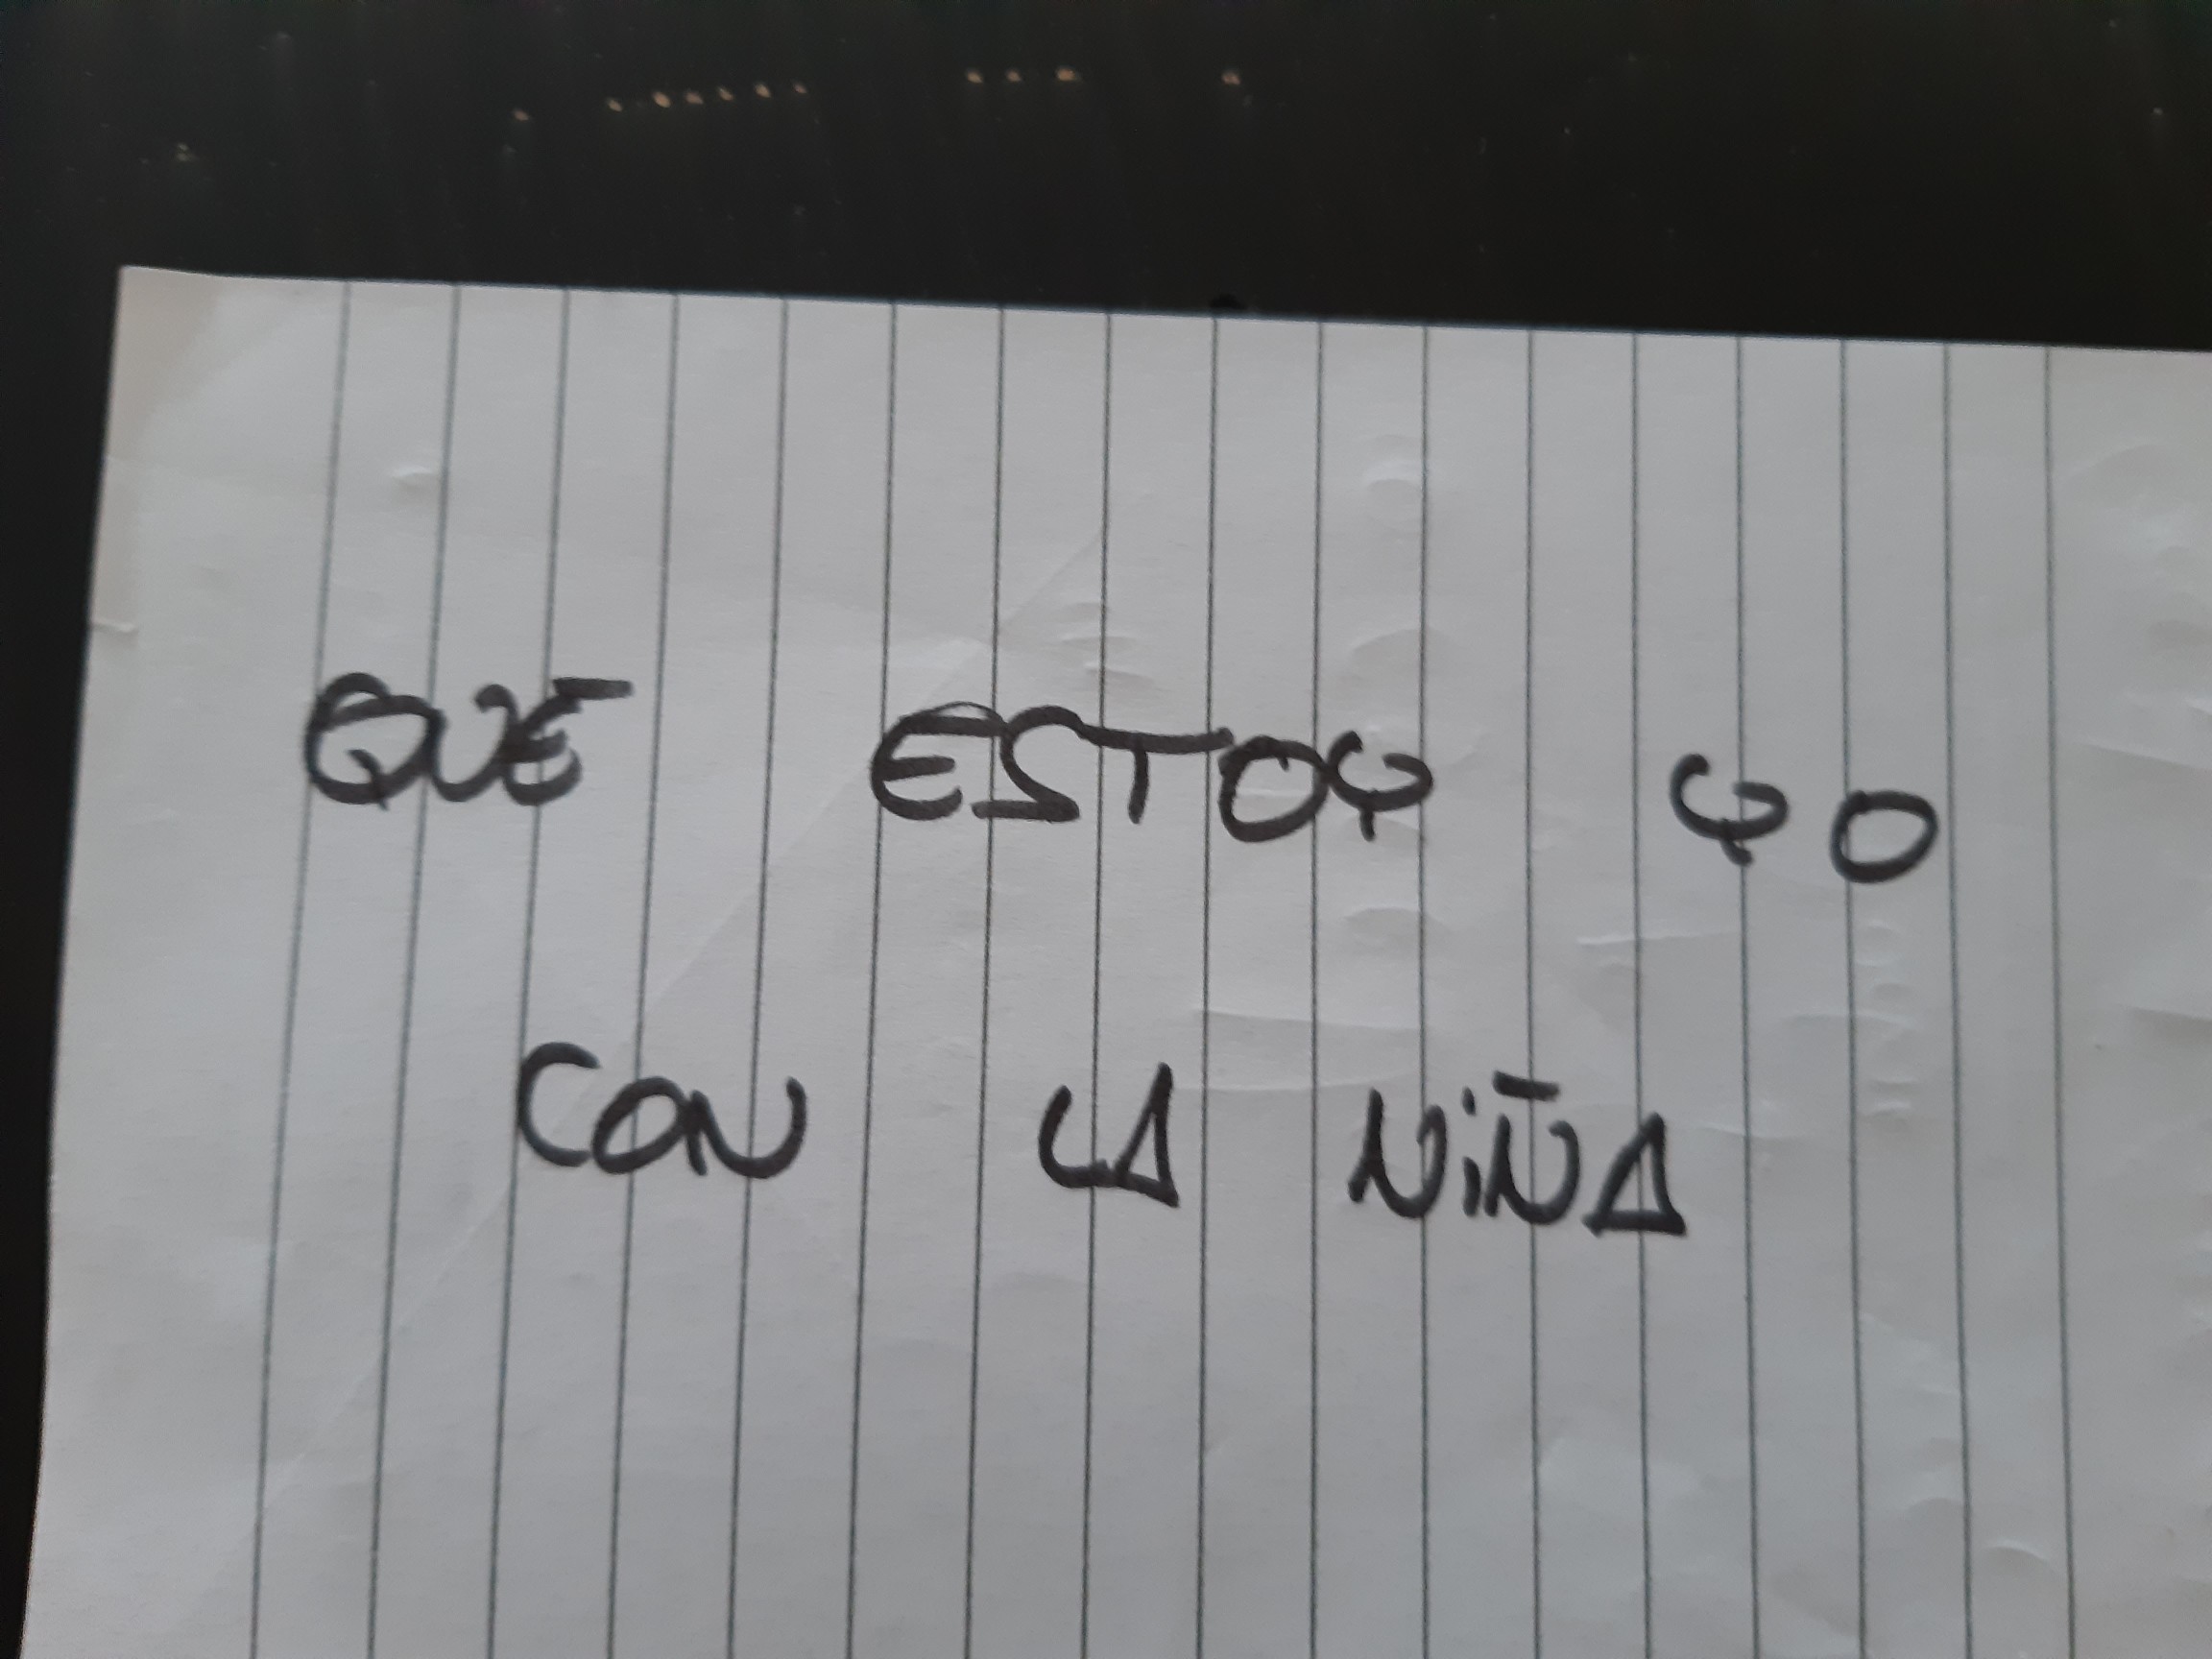 QUE ESTOY YO
CON LA NIÑA